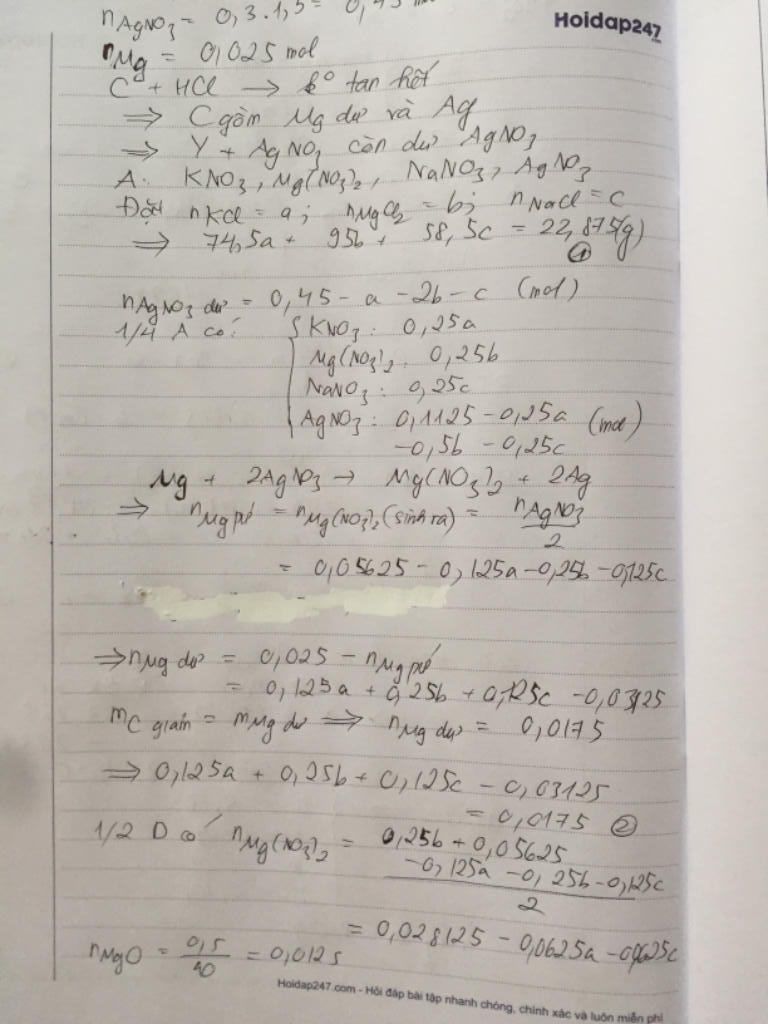 nAgNO3 = 0,3.1,5 = 0,45 mol
Hoidap247
.com
nMg = 0,025 mol
C + HCl → ko tan hết
⇒ C gồm Mg dư và Ag
⇒ Y + AgNO3 còn dư AgNO3
A: KNO3, Mg(NO3)2, NaNO3, AgNO3
Đặt nKCl = a; nMgCl2 = b; nNaCl = c
⇒ 74,5a + 95b + 58,5c = 22,875(g)
①
nAgNO3 dư = 0,45 - a - 2b - c (mol)
1/4 A có: { KNO3: 0,25a
Mg(NO3)2: 0,25b
NaNO3: 0,25c
AgNO3: 0,1125 - 0,25a (mol)
-0,5b - 0,25c
Mg + 2AgNO3 → Mg(NO3)2 + 2Ag
⇒ nMg pứ = nMg(NO3)2 (sinh ra) = nAgNO3
2
= 0,05625 - 0,125a - 0,25b - 0,125c
⇒ nMg dư = 0,025 - nMg pứ
= 0,125a + 0,25b + 0,125c - 0,03125
mC giảm = mMg dư ⇒ nMg dư = 0,0175
⇒ 0,125a + 0,25b + 0,125c - 0,03125
= 0,0175 ②
1/2 D có nMg(NO3)2 = 0,25b + 0,05625
-0,125a - 0,25b - 0,125c
2
= 0,028125 - 0,0625a - 0,0625c
nMgO = 0,5/40 = 0,0125
Hoidap247.com - Hỏi đáp bài tập nhanh chóng, chính xác và luôn miễn phí